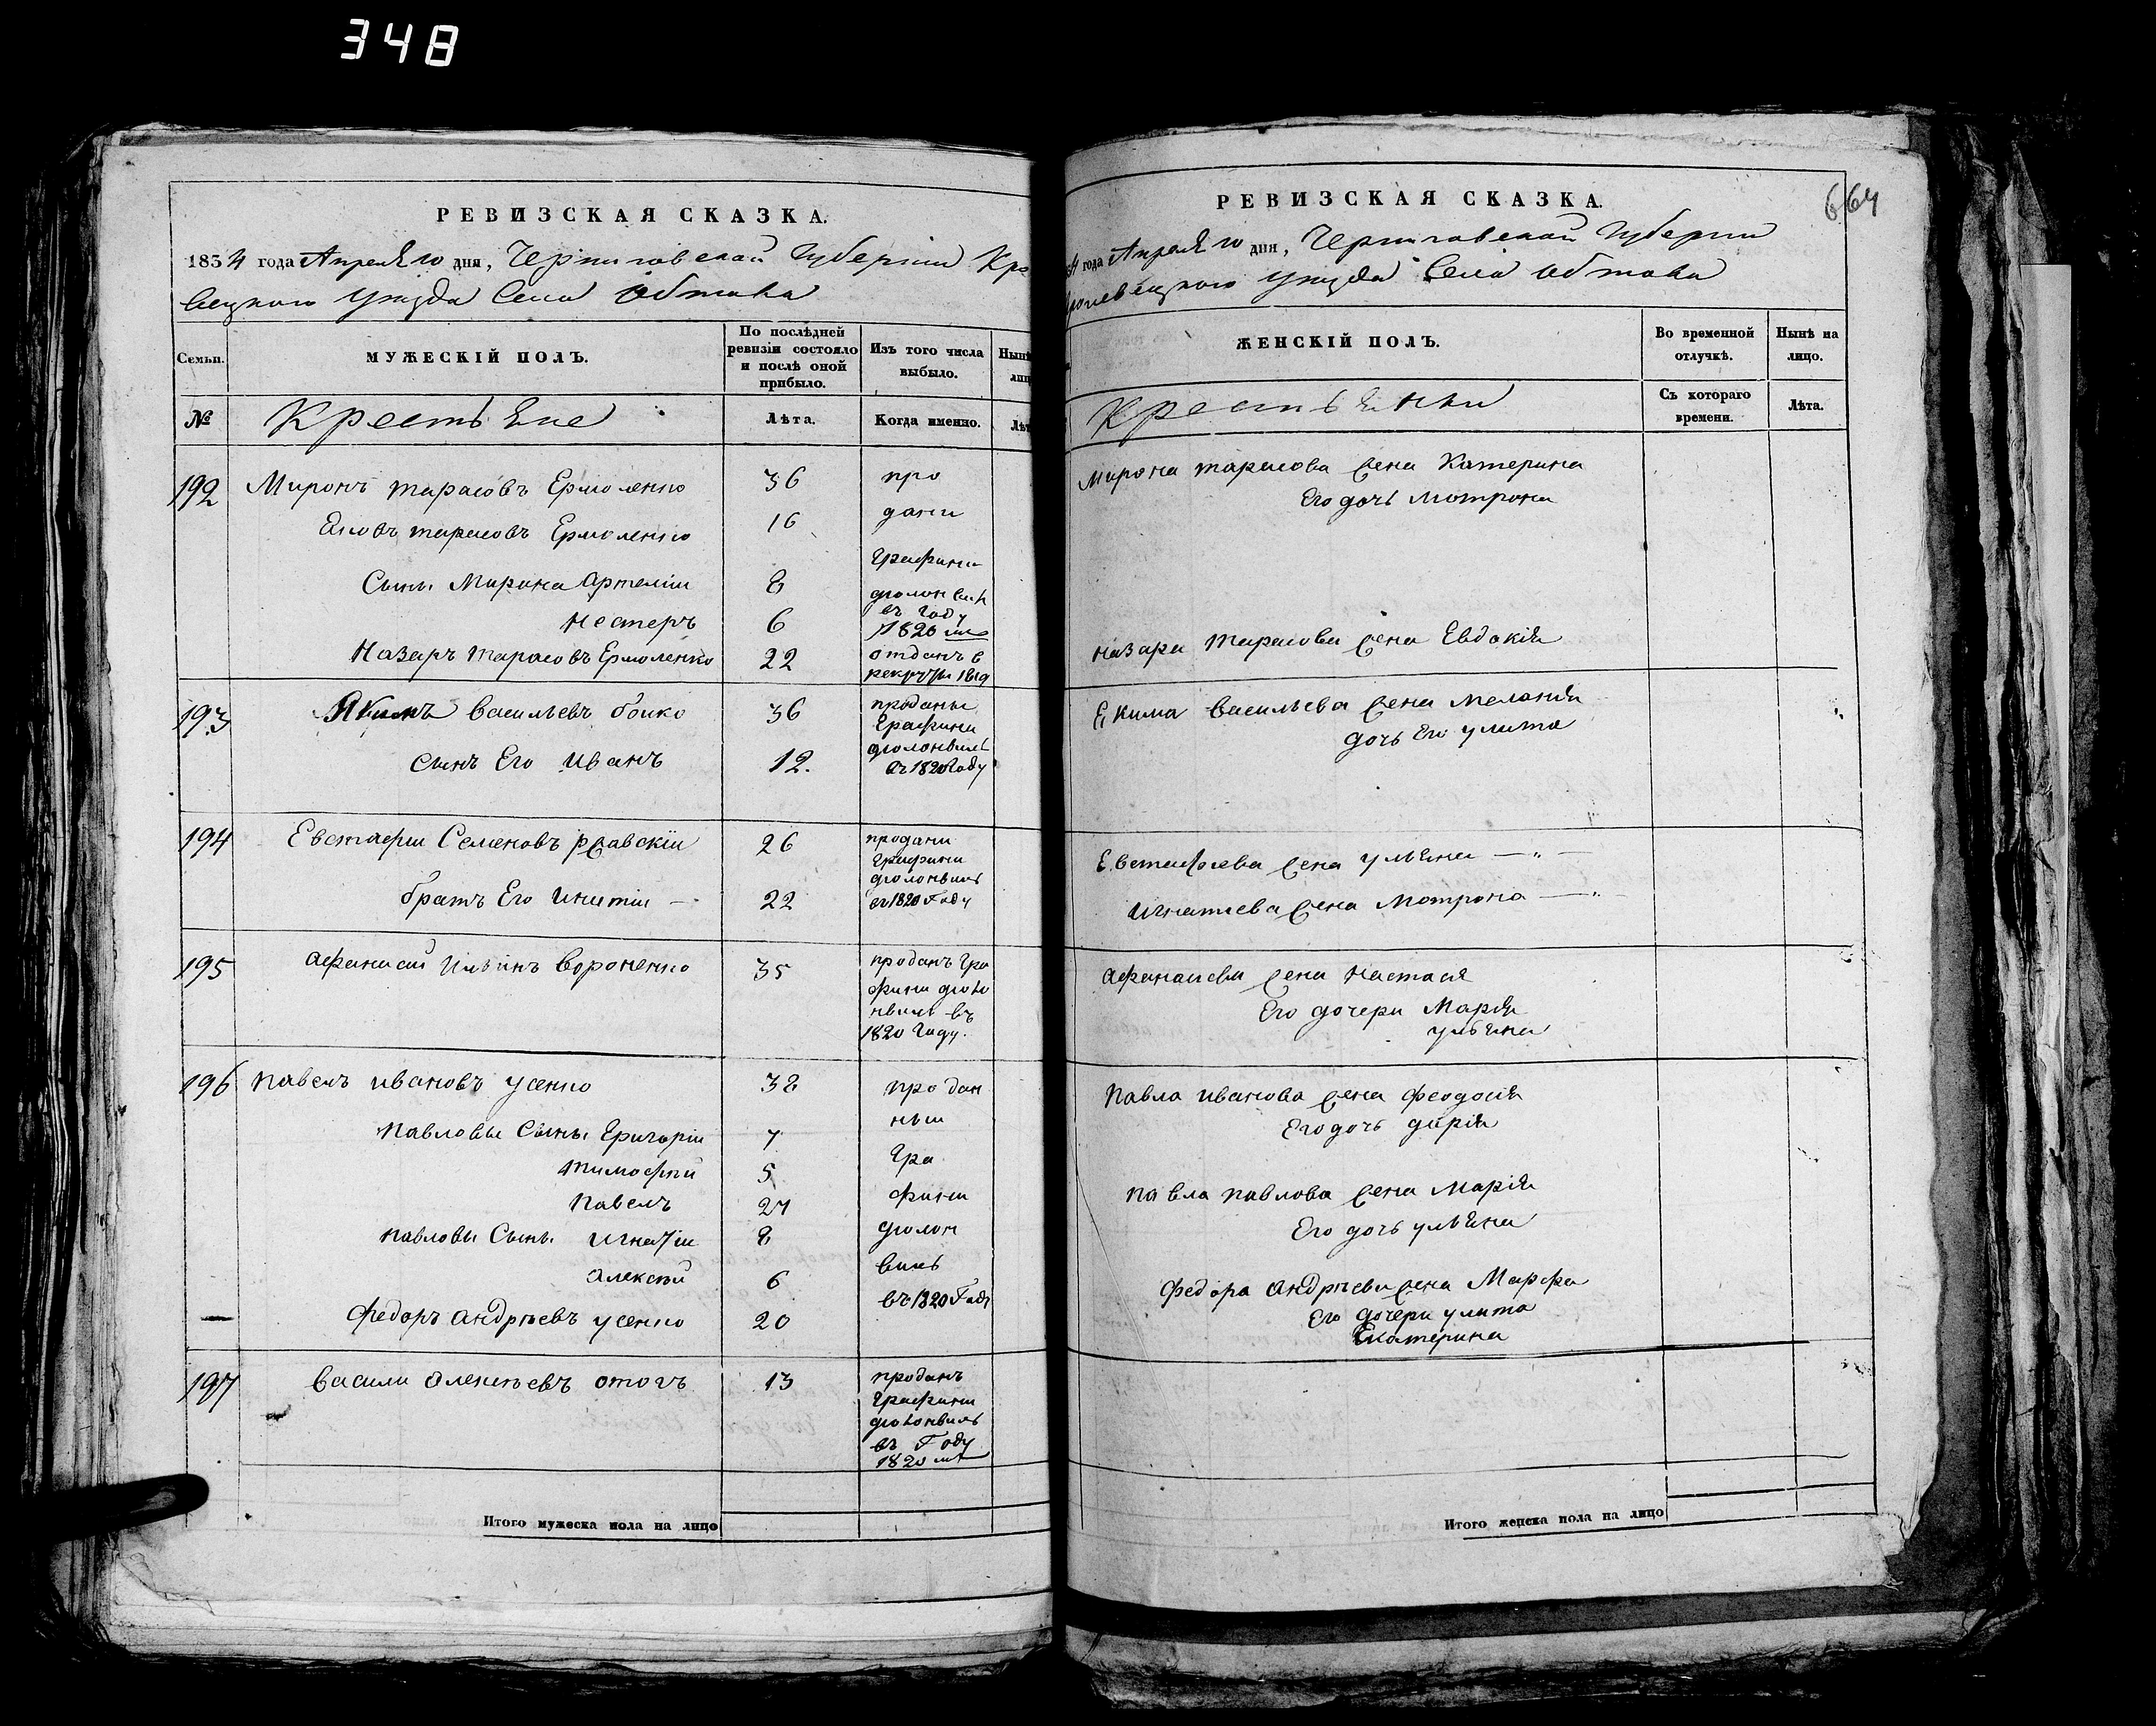 348
РЕВИЗСКАЯ СКАЗКА.
1834 года Апреля 10 дня, Черниговской Губернии Кро
вецкого уезда Села Обтова
Семьи.
МУЖЕСКІЙ ПОЛЪ.
По послѣдней ревизіи состояло и послѣ оной прибыло.
Изъ того числа выбыло.
Нынѣ
лиц
№
Крестьяне
Лѣта.
Когда именно.
Лѣт
192 Миронъ тарасовъ Ермоленко 36 про
Яковъ тарасовъ Ермоленко 16 дани
Графини
Сыны Мирона Артемiи 8
въ году
Нестеръ 6 1820
Назаръ тарасовъ Ермоленко 22 отданъ в
рекруты 1819
193 Якимъ васильевъ боико 36 проданы
Графини
сынъ Его Иванъ 12. въ 1820 Году
194 Евстафiи Семеновъ ржавскiи 26 продани
Графини
братъ Его Игнатiи — 22 въ 1820 Году
195 Афанасiй Ильинъ вороненко 35 проданъ Гра
фини
въ
1820 Году.
196 Павелъ ивановъ усенко 38 продан
ныи
Павловы Сыны Григорiи 7 Гра
тимофѣй 5 фини
Павелъ 27
Павловы Сыны Игнатiи 8
Алексѣй 6 въ 1820 Году
— Федоръ Андрѣевъ усенко 20
197 васили Алексѣевъ 13 проданъ
Графини
въ Году
1820
Итого мужеска пола на лицо
664
РЕВИЗСКАЯ СКАЗКА.
34 года Апреля 10 дня, Черниговской Губернии
кролевецкого уезда Села Обтова
ЖЕНСКІЙ ПОЛЪ.
Во временной отлучкѣ.
Нынѣ на лицо.
Крестьянки
Съ котораго времени.
Лѣта.
Мирона тарасова жена Катерина
Его дочь Мотрона
Назара тарасова жена Евдокiя
Екима васильева жена Меланiя
дочь Его улита
Евстафiева жена ульяна — „ —
Игнатiева жена Мотрона — „
Афанасiева жена Настасiя
Его дочери Марiя
ульяна
Павла Иванова жена Феодосiя
Его дочь дарiя
Павла Павлова жена Марiя
Его дочь ульяна
Федора Андрѣева жена Марфа
Его дочери улита
Екатерина
Итого женска пола на лицо